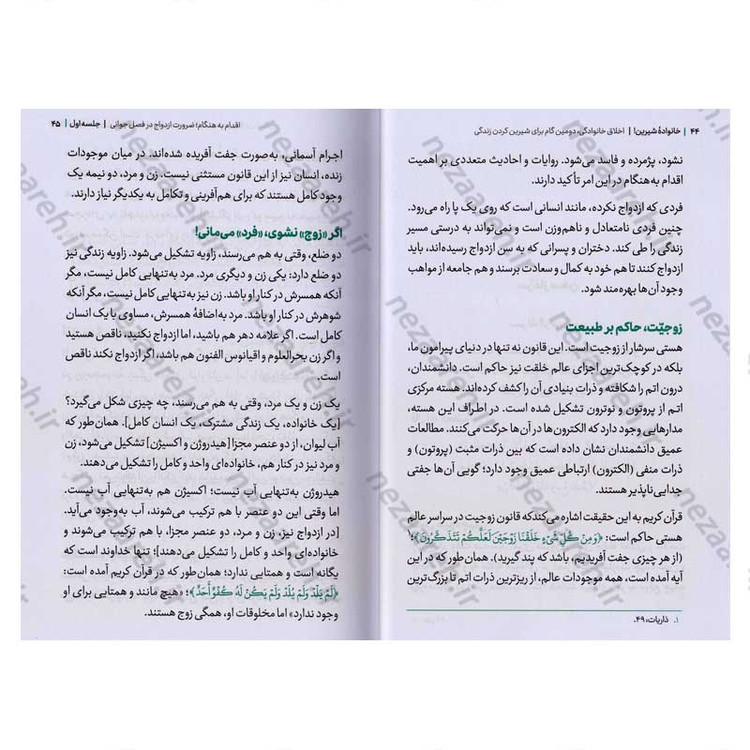 ۴۴ | خانوادهٔ شیرین! | اخلاق خانوادگی، دومین گام برای شیرین کردن زندگی
نشود، پژمرده و فاسد می‌شود. روایات و احادیث متعددی بر اهمیت
اقدام به‌هنگام در این امر تأکید دارند.
فردی که ازدواج نکرده، مانند انسانی است که روی یک پا راه می‌رود.
چنین فردی نامتعادل و ناهم‌وزن است و نمی‌تواند به درستی مسیر
زندگی را طی کند. دختران و پسرانی که به سن ازدواج رسیده‌اند، باید
ازدواج کنند تا هم خود به کمال و سعادت برسند و هم جامعه از مواهب
وجود آن‌ها بهره‌مند شود.
زوجیّت، حاکم بر طبیعت
هستی سرشار از زوجیت است. این قانون نه تنها در دنیای پیرامون ما،
بلکه در کوچک‌ترین اجزای عالم خلقت نیز حاکم است. دانشمندان،
درون اتم را شکافته و ذرات بنیادی آن را کشف کرده‌اند. هسته مرکزی
اتم از پروتون و نوترون تشکیل شده است. در اطراف این هسته،
مدارهایی وجود دارد که الکترون‌ها در آن‌ها حرکت می‌کنند. مطالعات
عمیق دانشمندان نشان داده است که بین ذرات مثبت (پروتون) و
ذرات منفی (الکترون) ارتباطی عمیق وجود دارد؛ گویی آن‌ها جفتی
جدایی‌ناپذیر هستند.
قرآن کریم به این حقیقت اشاره می‌کند که قانون زوجیت در سراسر عالم
هستی حاکم است: ﴿وَمِنْ كُلِّ شَيْءٍ خَلَقْنَا زَوْجَيْنِ لَعَلَّكُمْ تَذَكَّرُونَ﴾؛۱
(از هر چیزی جفت آفریدیم، باشد که پند گیرید). همان‌طور که در این
آیه آمده است، همه موجودات عالم، از ریزترین ذرات اتم تا بزرگ‌ترین
۱. ذاریات، ۴۹.
اقدام به هنگام؛ ضرورت ازدواج در فصل جوانی | جلسه اول | ۴۵
اجرام آسمانی، به‌صورت جفت آفریده شده‌اند. در میان موجودات
زنده، انسان نیز از این قانون مستثنی نیست. زن و مرد، دو نیمه یک
وجود کامل هستند که برای هم‌آفرینی و تکامل به یکدیگر نیاز دارند.
اگر «زوج» نشوی، «فرد» می‌مانی!
دو ضلع، وقتی به هم می‌رسند، زاویه تشکیل می‌شود. زاویه زندگی نیز
دو ضلع دارد: یکی زن و دیگری مرد. مرد به‌تنهایی کامل نیست، مگر
آنکه همسرش در کنار او باشد. زن نیز به‌تنهایی کامل نیست، مگر آنکه
شوهرش در کنار او باشد. مرد به‌اضافهٔ همسرش، مساوی با یک انسان
کامل است. اگر علامه دهر هم باشید، اما ازدواج نکنید، ناقص هستید
و اگر زن بحرالعلوم و اقیانوس الفنون هم باشد، اگر ازدواج نکند ناقص
است.
یک زن و یک مرد، وقتی به هم می‌رسند، چه چیزی شکل می‌گیرد؟
[یک خانواده، یک زندگی مشترک، یک انسان کامل]. همان‌طور که
آب لیوان، از دو عنصر مجزا [هیدروژن و اکسیژن] تشکیل می‌شود، زن
و مرد نیز در کنار هم، خانواده‌ای واحد و کامل را تشکیل می‌دهند.
هیدروژن به‌تنهایی آب نیست؛ اکسیژن هم به‌تنهایی آب نیست.
اما وقتی این دو عنصر با هم ترکیب می‌شوند، آب به‌وجود می‌آید.
[در ازدواج نیز، زن و مرد، دو عنصر مجزا، با هم ترکیب می‌شوند و
خانواده‌ای واحد و کامل را تشکیل می‌دهند]؛ تنها خداوند است که
یگانه است و همتایی ندارد؛ همان‌طور که در قرآن کریم آمده است:
﴿لَمْ يَلِدْ وَلَمْ يُولَدْ وَلَمْ يَكُنْ لَهُ كُفُوًا أَحَدٌ﴾؛ «هیچ مانند و همتایی برای او
وجود ندارد» اما مخلوقات او، همگی زوج هستند.
nezaareh.ir